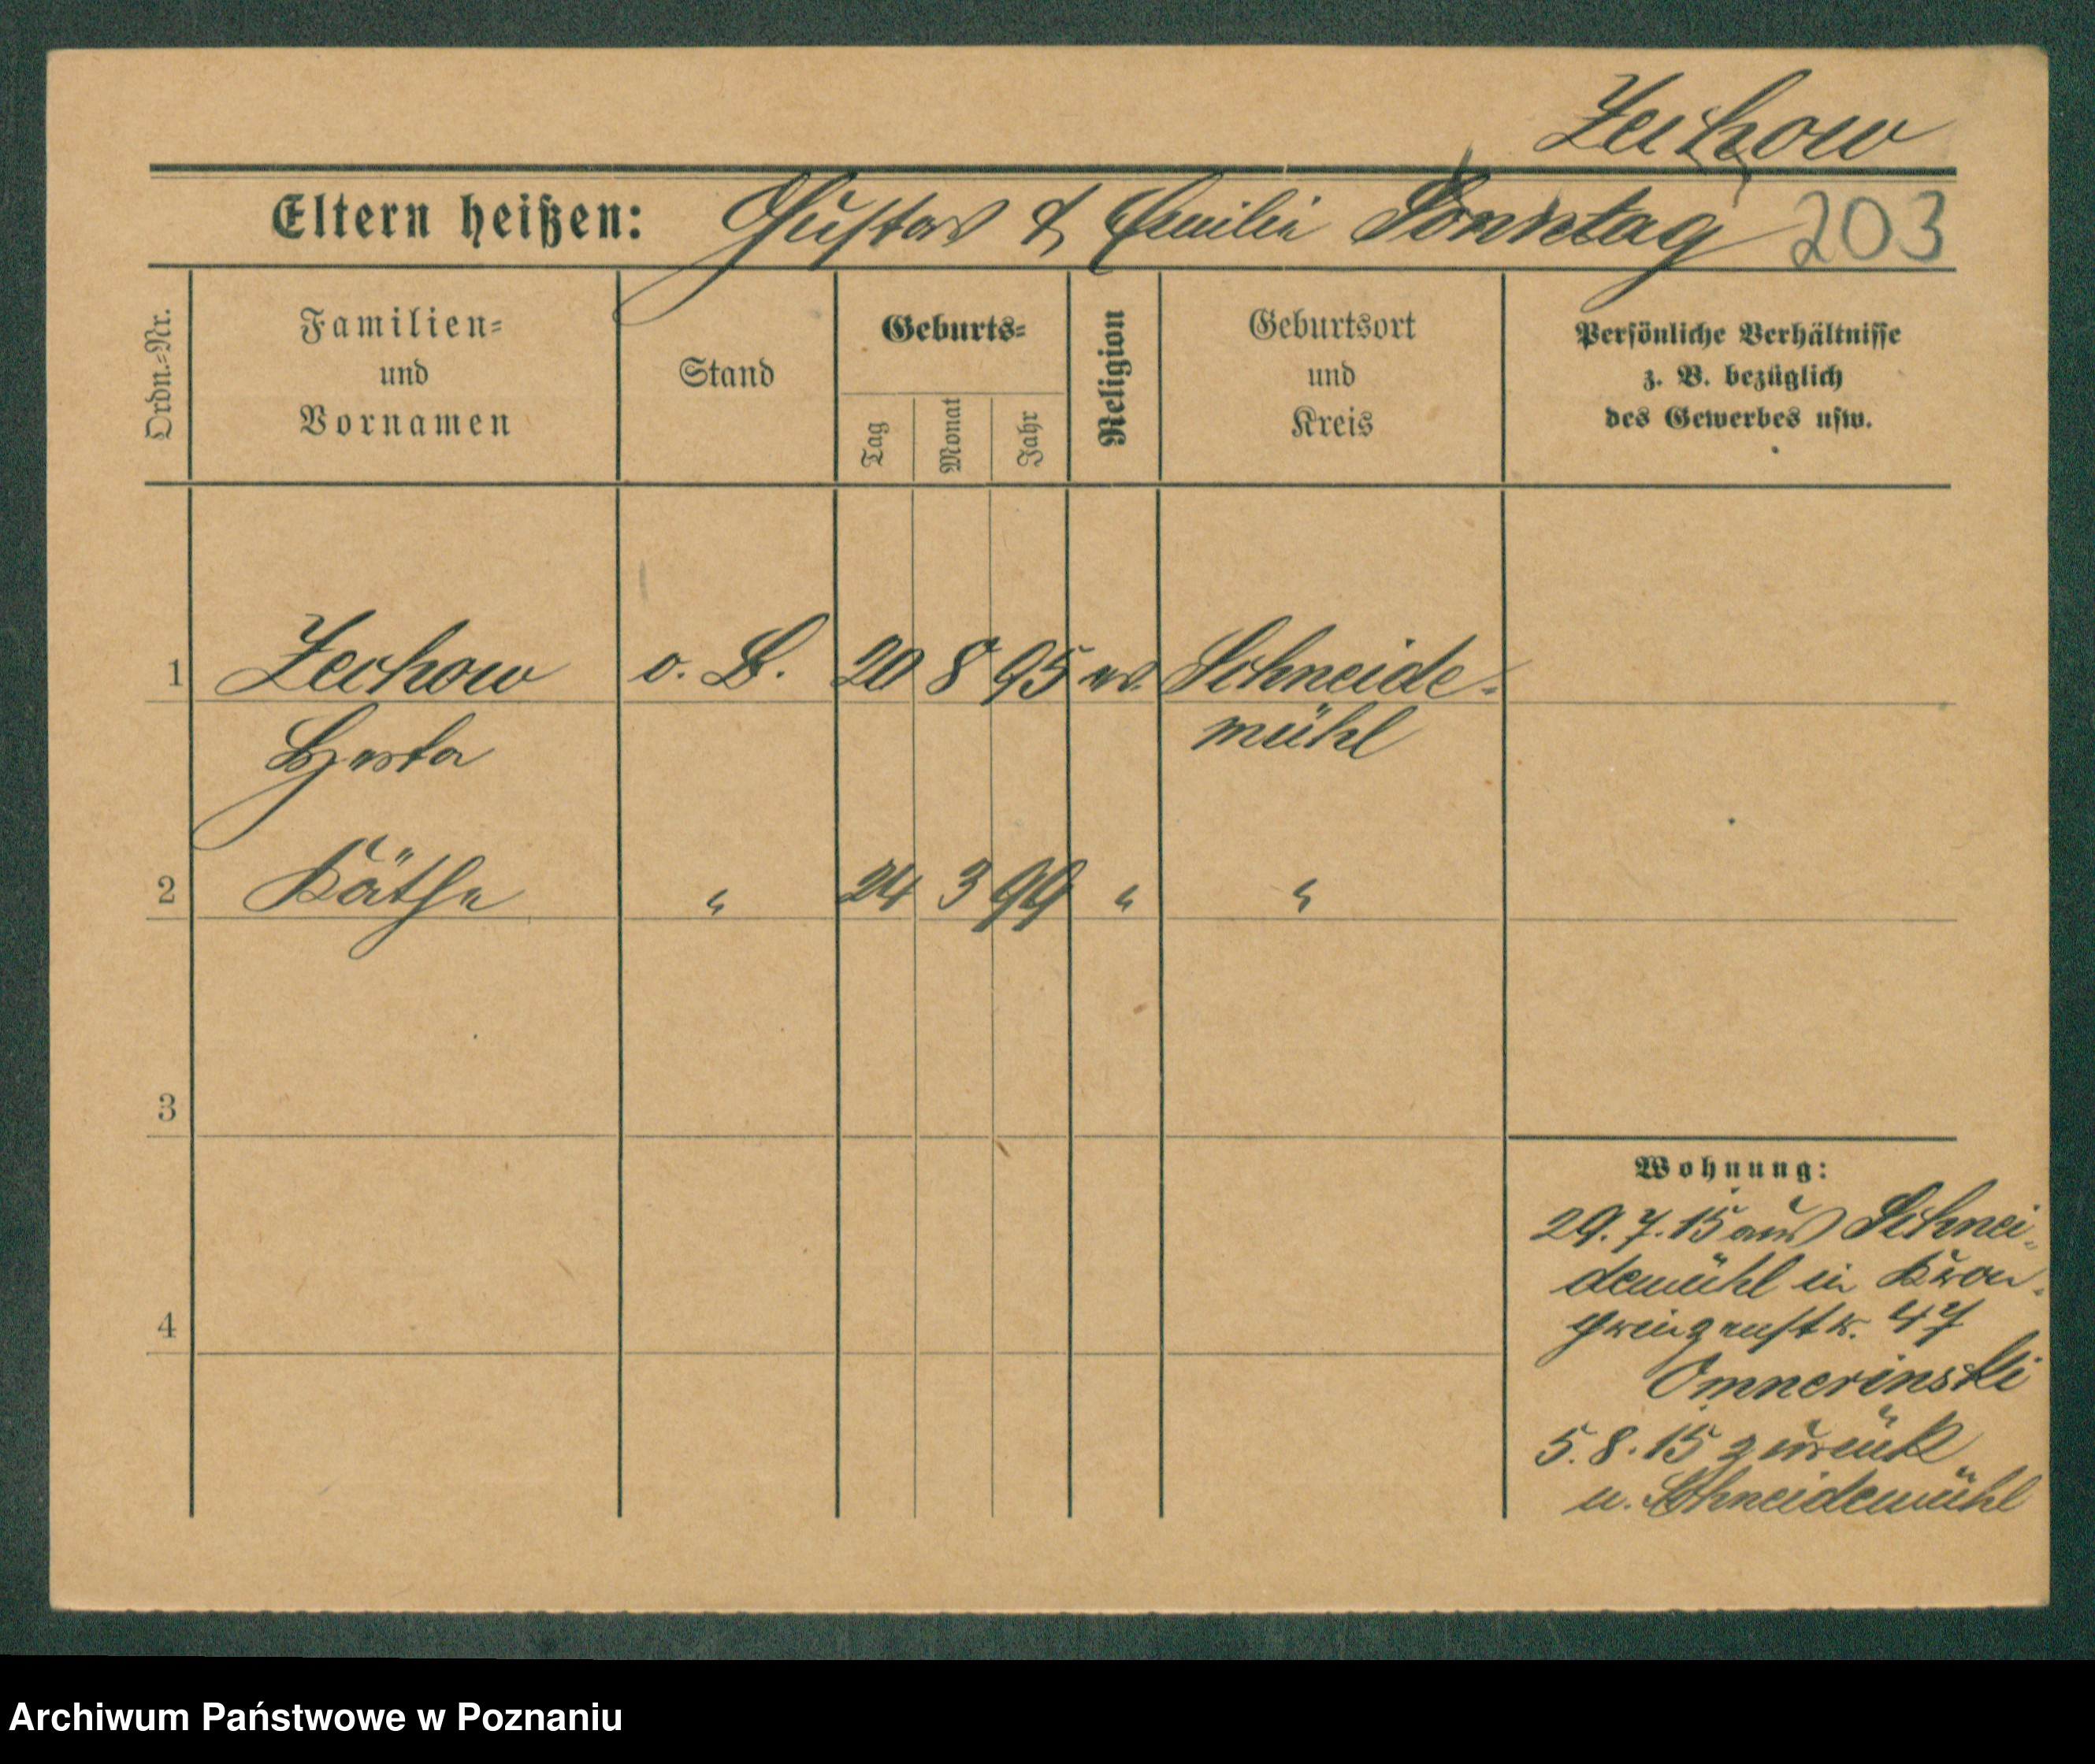 Zechow
Eltern heißen: Gustav & Emilie Sonntag 203
Ordn.-Nr.
Familien-
und
Vornamen
Stand
Geburts-
Tag
Monat
Jahr
Religion
Geburtsort
und
Kreis
Persönliche Verhältnisse
z. B. bezüglich
des Gewerbes usw.
1 Zechow o. B. 20 8 95 ev. Schneide-
Herta mühl
2 Käthe " 24 3 99 " "
3
Wohnung:
29.7.15 aus Schnei-
demühl in Kron-
4
prinzenstr. 47
5.8.15 zurück
n. Schneidemühl
Archiwum Państwowe w Poznaniu